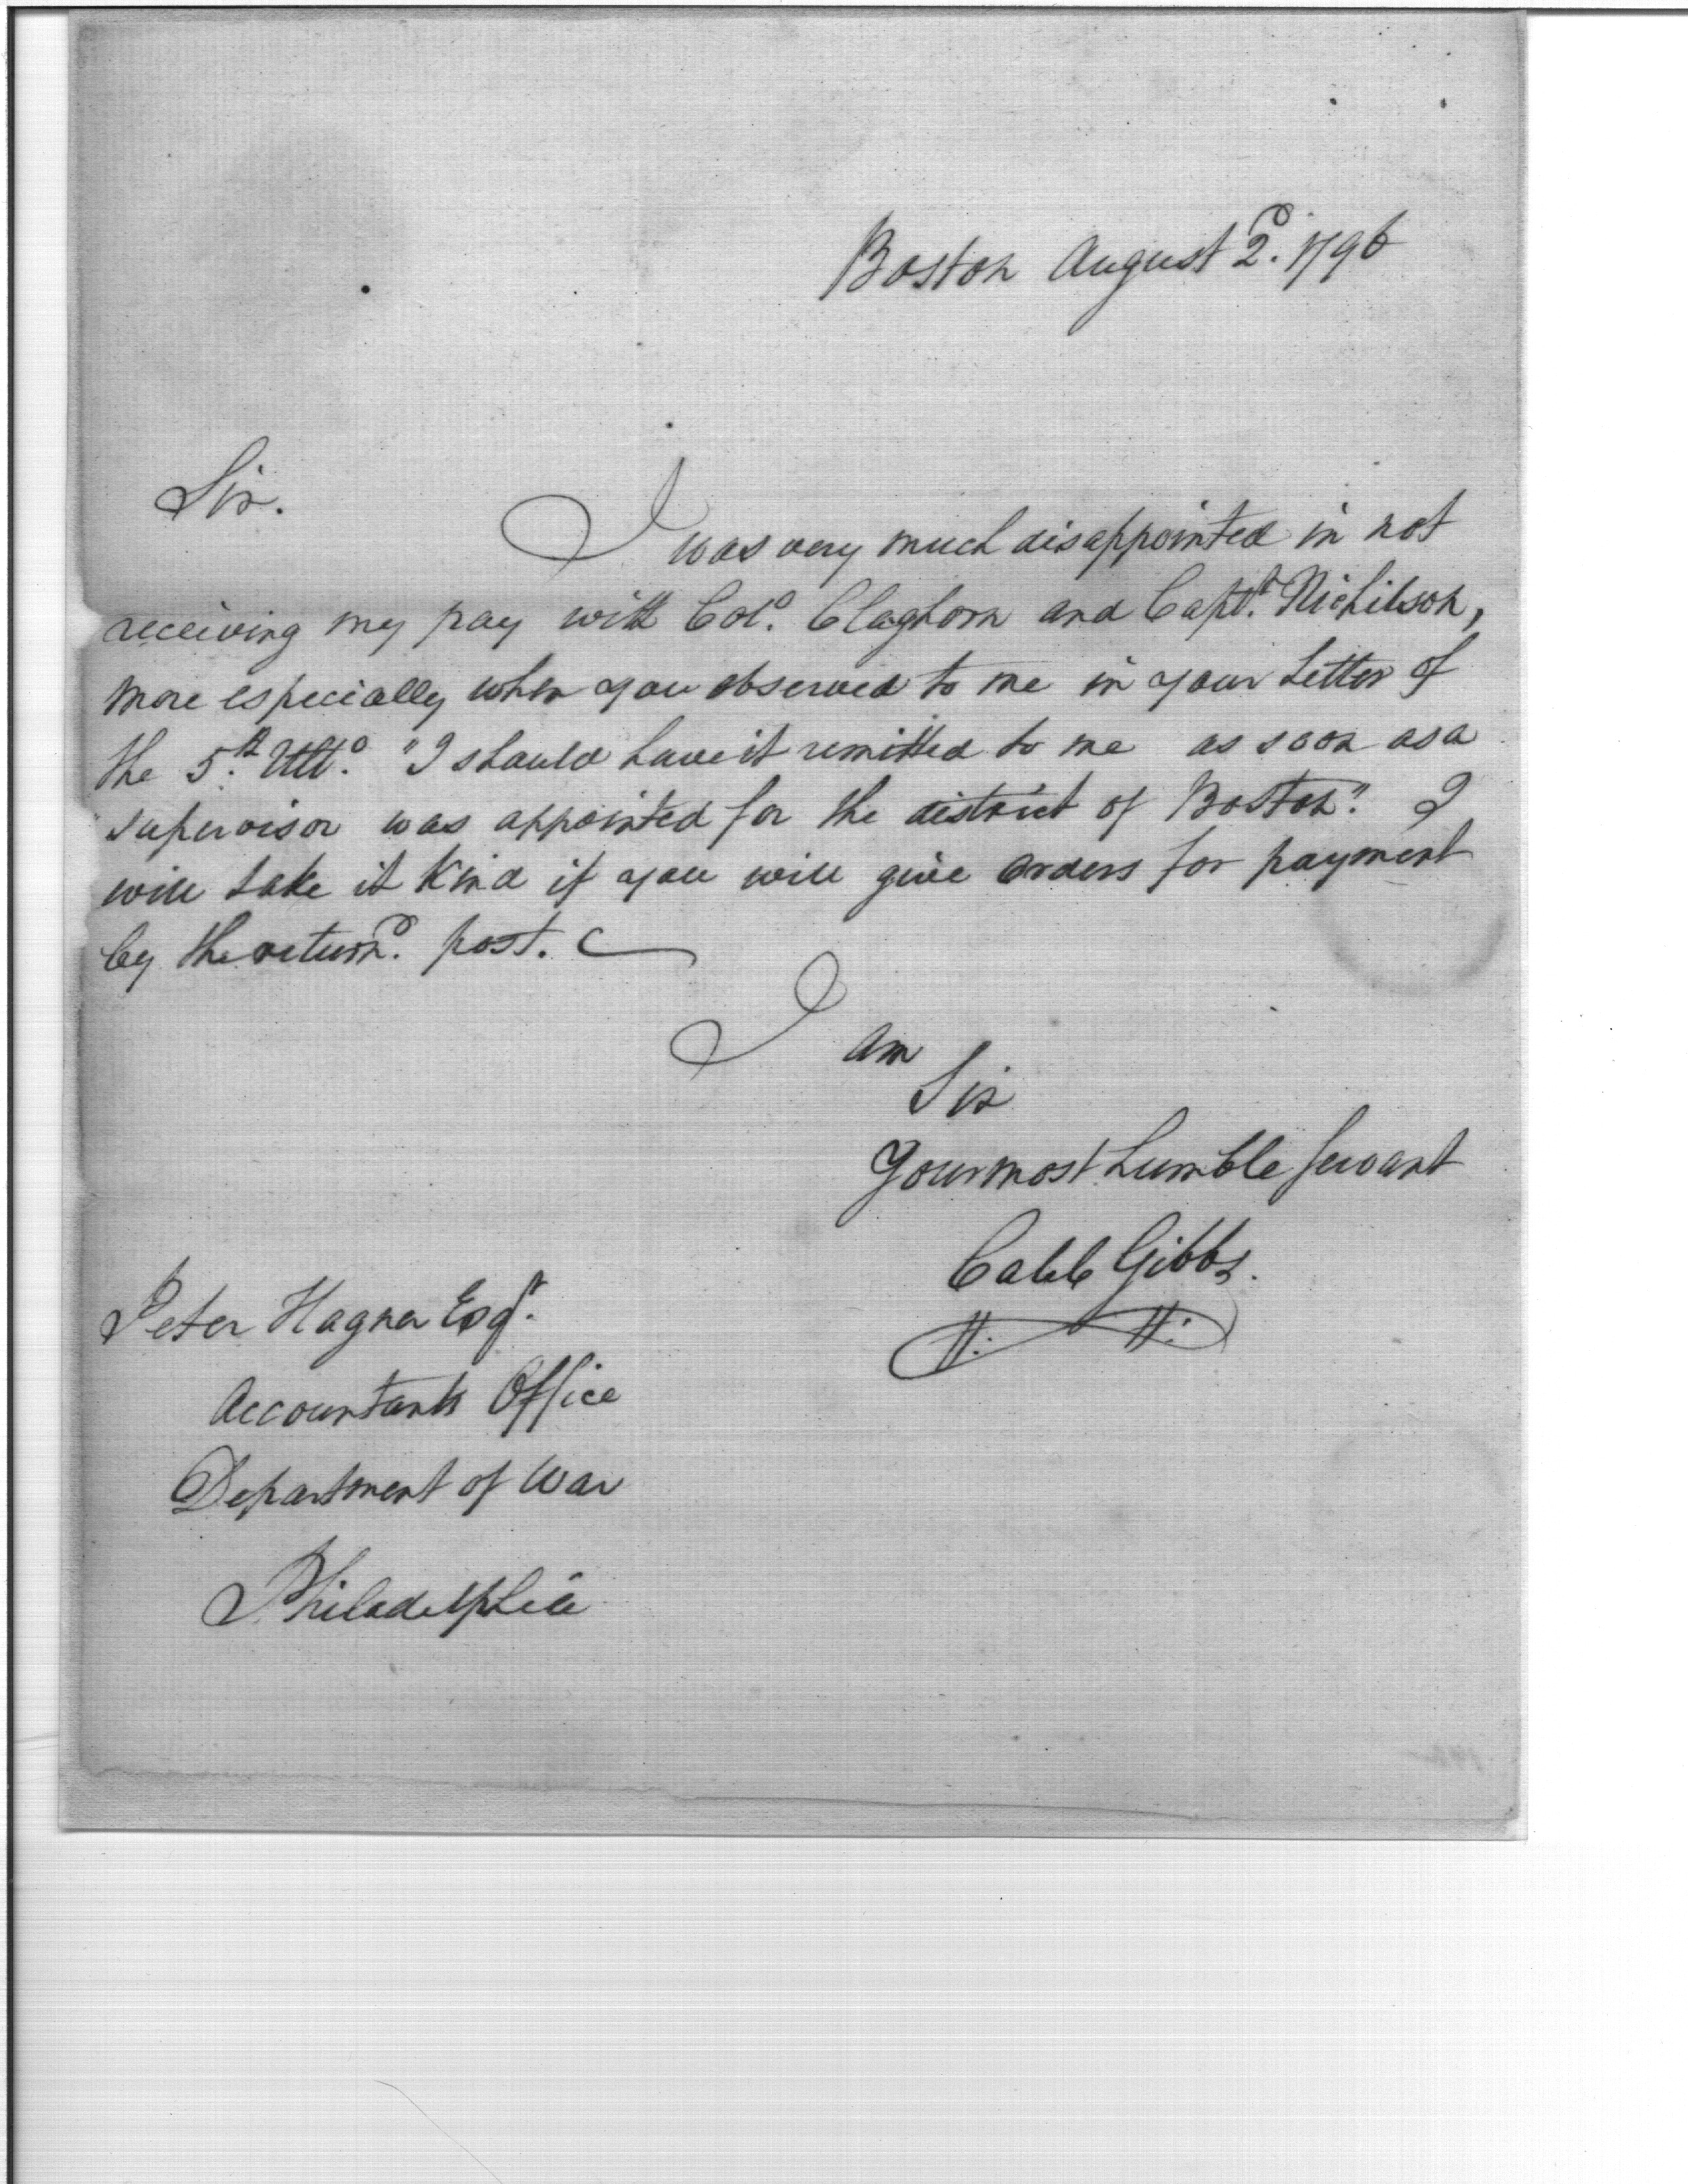 Boston August 2d. 1796
Sir.
I was very much disappointed in not
receiving my pay with Colo. Claghorn and Captn. Nichilson,
more especially when you observed to me in your Letter of
the 5th. Ulto. "I should have it remitted to me as soon as a
"supervisor was appointed for the district of Boston." I
will take it kind if you will give orders for payment
by the returnd. post.
I am
Sir
Your most humble servant
Caleb Gibbs.
Peter Hagner Esqr.
Accountants Office
Department of War
Philadelphia